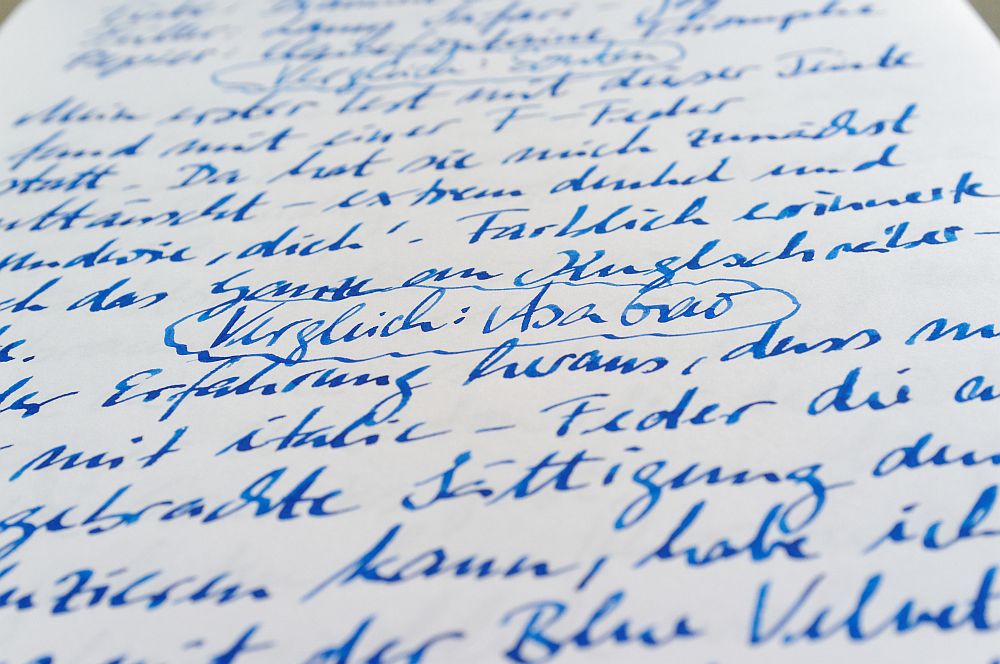 Füller: Lamy Safari -
Papier: Clairefontaine Triomphe
Vergleich:
Mein erster Test mit dieser Tinte
fand mit einer F-Feder
statt. Da hat sie mich zunächst
enttäuscht - extrem dunkel und
irgendwie „dick“. Farblich erinnerte
das Ganze an Kugelschreiber-
Vergleich: Asa Gao
der Erfahrung heraus, dass
mit italic - Feder die
gebrachte Sättigung
kann, habe ich
mit der Blue Velvet